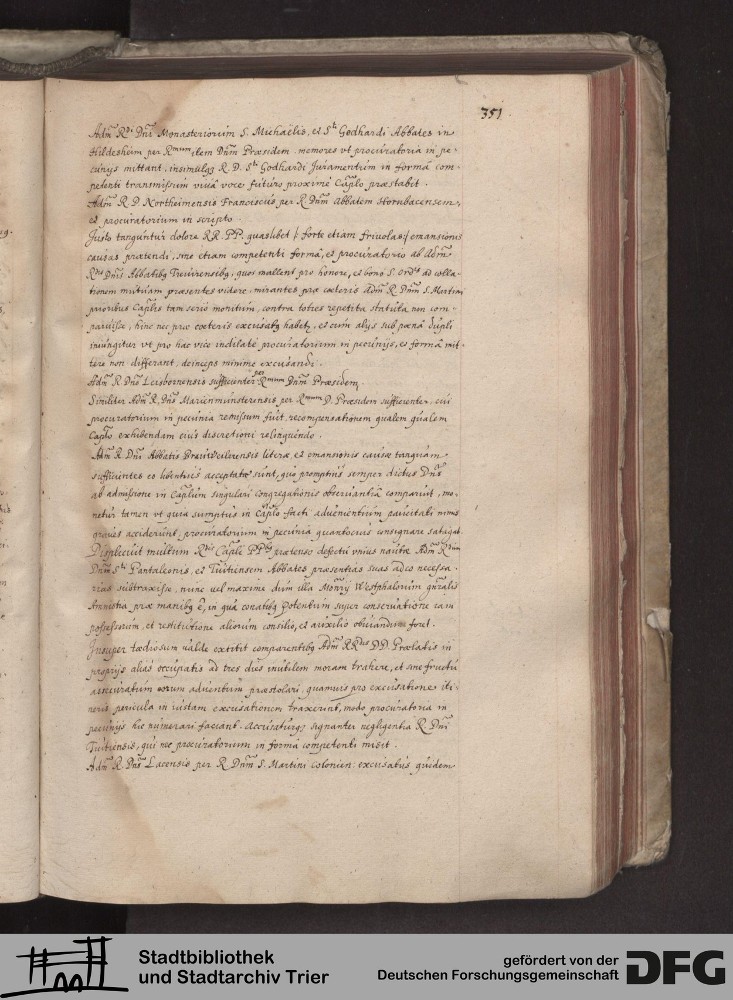 351
Adm̃ Rdi Dni Monasteriorum S. Michaëlis, et Sti Godhardi Abbates in
Hildesheim per Rmum itẽm Dnm̃ Præsidem. memores vt procuratoria in pe-
cunijs mittant, insimulq R. D. Sti Godhardi Juramentum in formâ com-
petenti transmissum vivâ voce futuro proximè Caplo præstabit.
Adm̃ R. D. Northeimensis Franciscus per R Dnm̃ Abbatem Hornbacensem,
et procuratorium in scripto
Justo tanguntur dolore RR. PP. quaslibet /: forte etiam friuolas :/ emansionis
causas prætendi, sine etiam competenti formâ, et procuratorio ab Adm̃
Rdis Dnis Abbatibq Trevirensibq, quos mallent pro honore, et bono S. Ordis ad colla-
tionem mutuam præsentes videre. mirantes præ cæteris Adm̃ R. Dnm̃ S. Martini
prioribus Caplis tam seriò monitum, contra toties repetita statuta non com-
paruisse, hinc nec præ cæteris excusatq habetr, et cum alijs sub pœnâ dupli
iniungitur vt pro hac vice indilatè procuratorium in pecunijs, et formâ mit-
tere non differant, deinceps minimè excusandi.
Adm̃ R. Dns Leisbornensis sufficienter per Rmum Dnm̃ Præsidem.
Similiter Adm̃ R. Dns Marienmunsterensis per Rmum D. Præsidem sufficienter, cui
procuratorium in pecunia remissum fuit, recompensationem qualem qualem
Caplo exhibendam eius discretioni relinquendo.
Adm̃ R. Dni Abbatis Brauweilerensis literæ, et emansionis causæ tanquam
sufficientes eo libentius acceptatæ sunt, quo promptius semper dictus Dns
ab admissione in Caplum singulari congregationis obseruantiâ comparuit, mo-
netur tamen vt quia sumptus in Caplo facti aduenientium paucitati nimis
graues acciderunt, procuratorium in pecunia quantocius consignare satagat.
Displicuit multum Rdis Capli PPbq prætenso defectu vnius nautæ Adm̃ Rdum
Dnm̃ Sti Pantaleonis, et Tuitiensem Abbates præsentias suas adeo necessa-
rias subtraxisse, nunc uel maximè dum illa Monrij Westphalorum gnralis
Amnistia præ manibq ẽ, in quâ conatibq Potentum super conseruatione eam
possessorum, et restitutione aliorum consilio, et auxilio obuiandum foret.
Insuper tædiosum ualde extitit comparentibq Adm̃ RRdis DD. Prælatis in
proprijs aliàs occupatis ad tres dies inutilem moram trahere, et sine fructu
assecuratum eorum aduentum præstolari, quamuis pro excusatione iti-
neris pericula in iustam excusationem traxerint, modo procuratoria in
pecunijs hic numerari faciant. Accusaturq signanter negligentia R. Dni
Tuitiensis, qui nec procuratorium in formâ competenti misit.
Adm̃ R. Dns Lacensis per R. Dnm̃ S. Martini Colonien: excusatus quidem
Stadtbibliothek
und Stadtarchiv Trier
gefördert von der
Deutschen Forschungsgemeinschaft
DFG